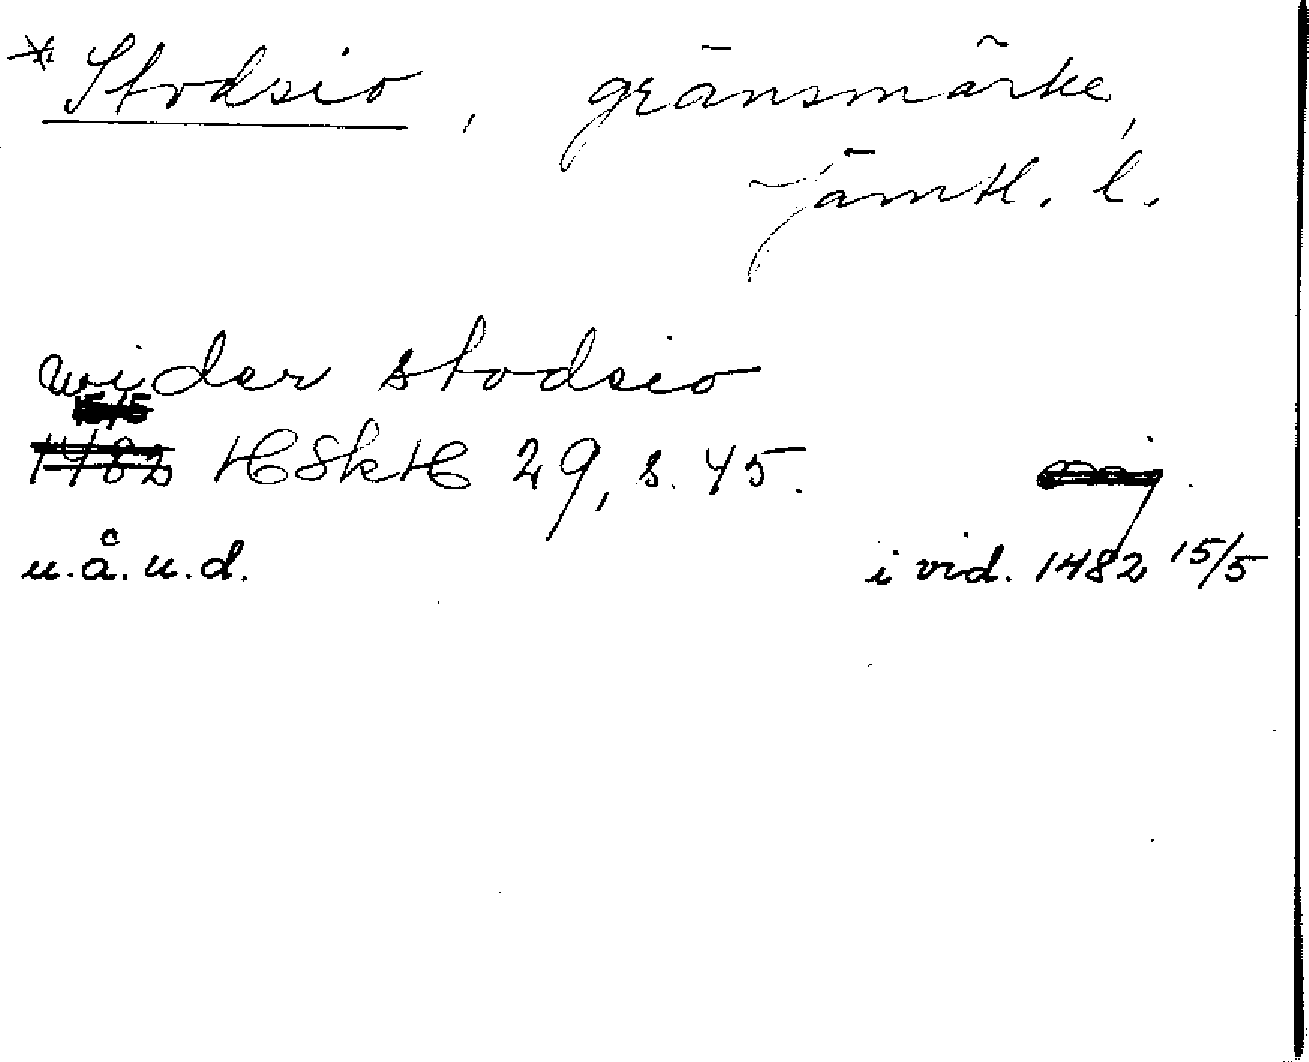 * Stodsio, gränsmärke,
Jämtl. l.
wider stodsio
15/5
1482 HSkH 29, s. 45.
u.å.u.d. i vid. 1482 15/5